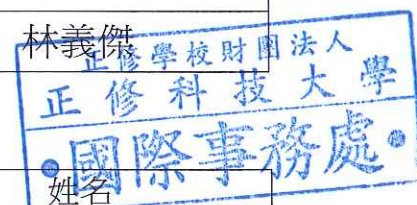 林義傑
正修學校財團法人
正修科技大學
國際事務處
姓名